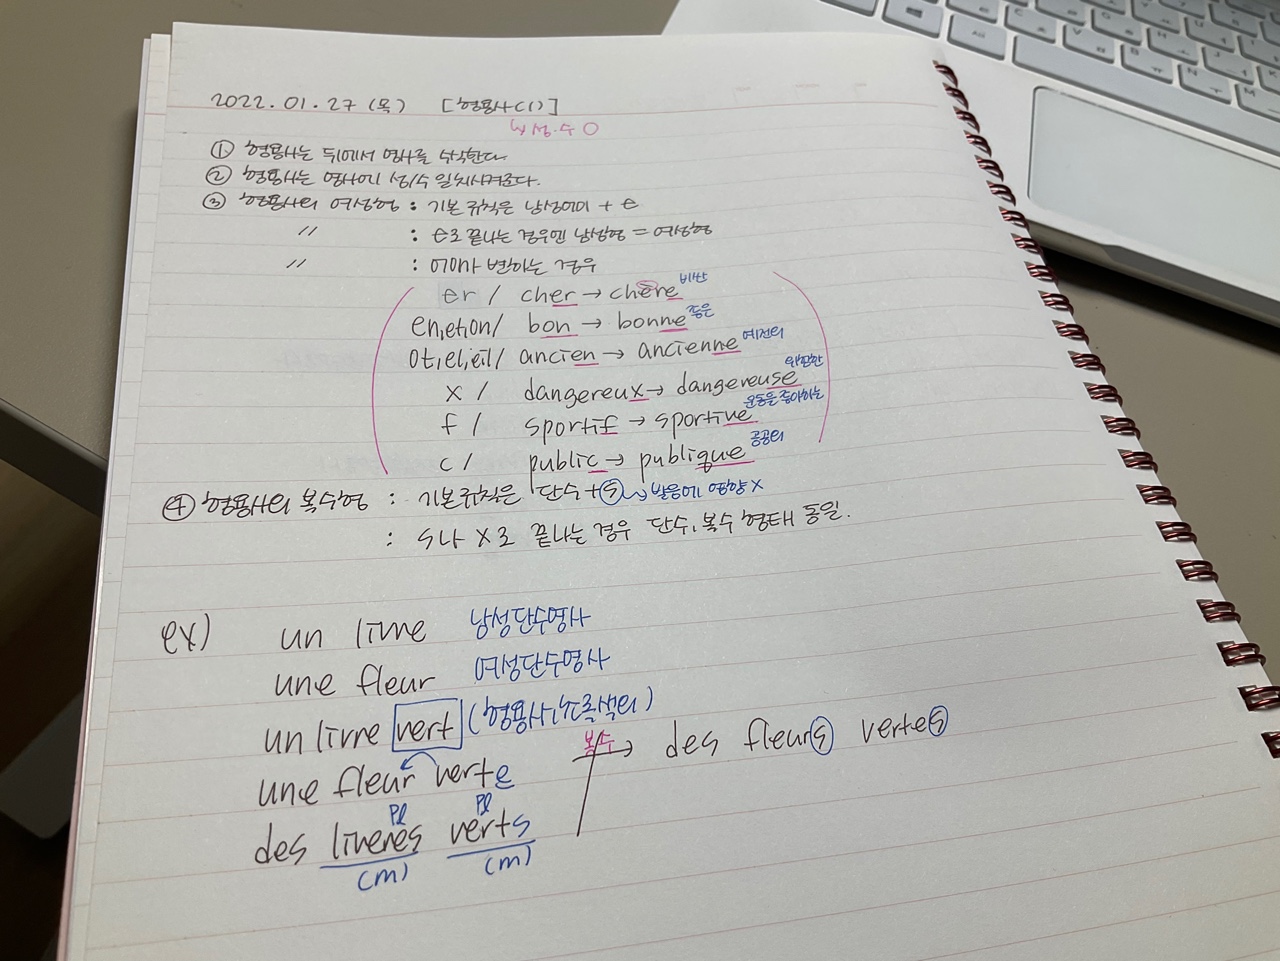 2022.01.27 (목) [형용사(1)]
↳ 성·수 O
① 형용사는 뒤에서 명사를 수식한다
② 형용사는 명사에 성/수 일치시켜준다.
③ 형용사의 여성형 : 기본 규칙은 남성어미 + e
〃 : e로 끝나는 경우엔 남성형 = 여성형
〃 : 어미가 변하는 경우
er / cher → chère 비싼
en, on / bon → bonne 좋은
ot, el, eil / ancien → ancienne 예전의
x / dangereux → dangereuse 위험한
f / sportif → sportive 운동을 좋아하는
c / public → publique 공공의
④ 형용사의 복수형 : 기본규칙은 단수 + s → 발음에 영향 X
: s나 x로 끝나는 경우 단수, 복수 형태 동일.
ex) un livre 남성단수명사
une fleur 여성단수명사
un livre vert (형용사, 초록색의)
복수 → des fleurs vertes
une fleur verte
Pl Pl
des livres verts
(m) (m)